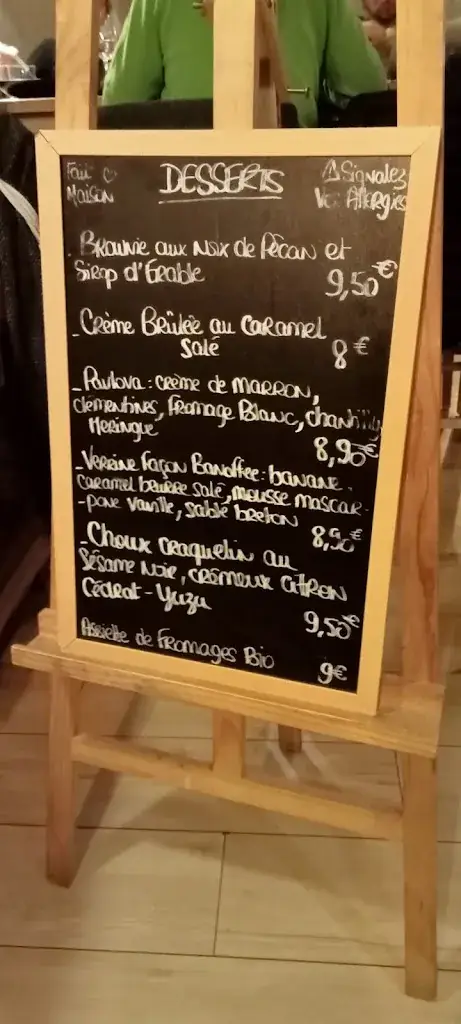 Fait ♡
Maison
DESSERTS
⚠ Signalez
Vos Allergies
- Brownie aux Noix de Pécan et
Sirop d'Érable
9,50€
- Crème Brûlée au Caramel
Salé
8€
- Pavlova : crème de MARRON,
clémentines, Fromage Blanc, chantilly
Meringue
8,90€
- Verrine Façon Banoffee : banane.
caramel beurre salé, mousse mascar-
-pone vanille, sablé breton
8,90€
- Choux craquelin au
Sésame Noir, crémeux citron
Cédrat - Yuzu
9,50€
Assiette de Fromages Bio
9€